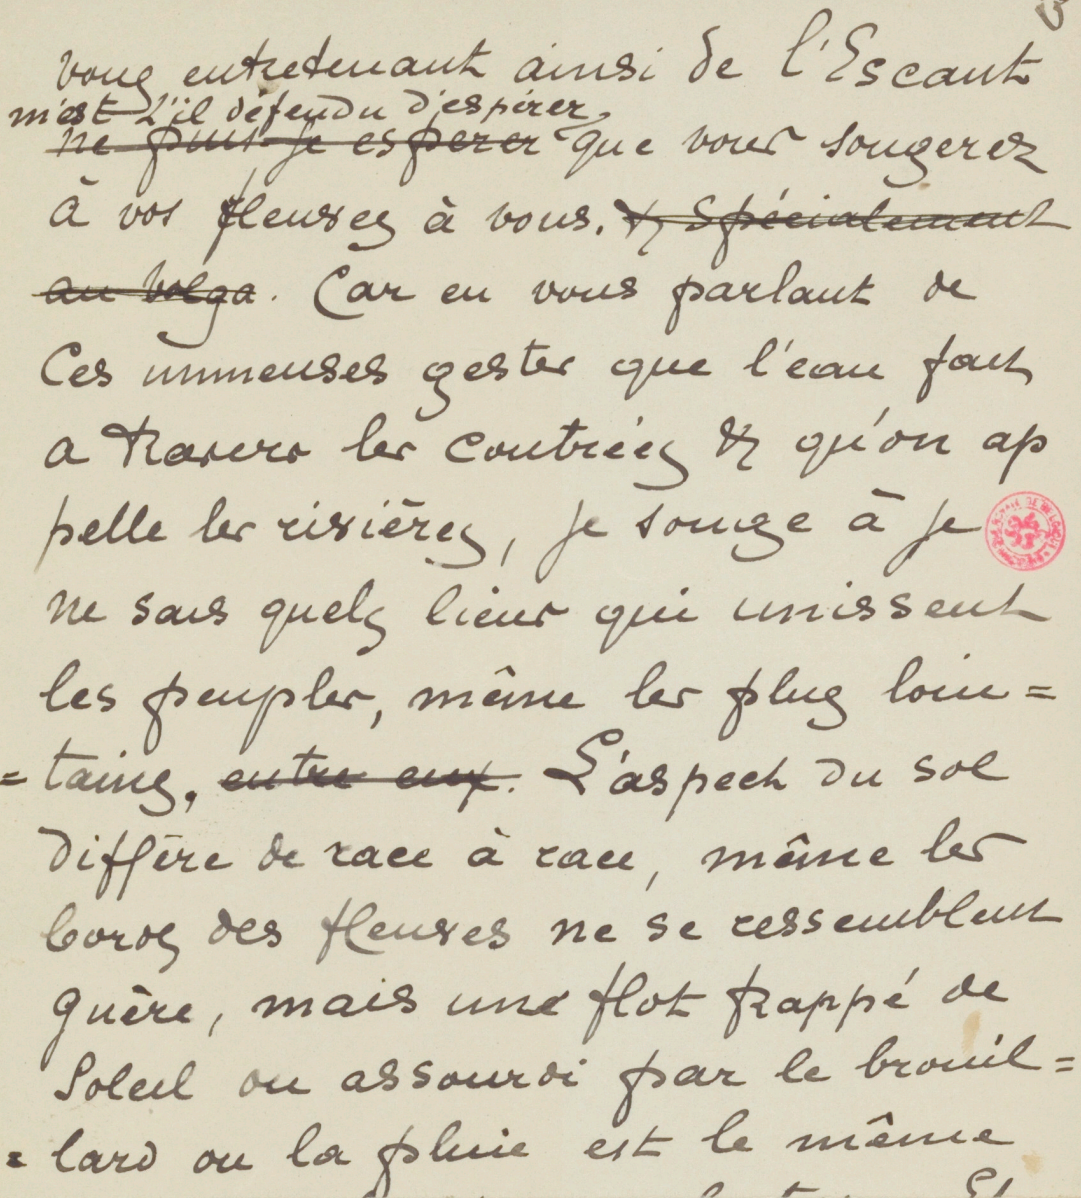 vous entretenant ainsi de l'Escaut
m'est-il défendu d'espérer,
ne puis-je esperer que vous songerez
à vos fleuves à vous. & spécialement
au Volga. Car en vous parlant de
Ces immenses gestes que l'eau fait
a travers les contrées & qu'on ap
pelle les rivières, je songe à je
ne sais quels liens qui unissent
les peuples, même les plus loin=
=tains, entre eux. L'aspect du sol
diffère de race à race, même les
bords des fleuves ne se ressemblent
guère, mais une flot frappé de
Soleil ou assourdi par le brouil=
=lard ou la pluie est le même